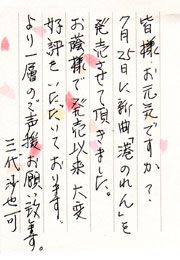 皆様お元気ですか？
7月25日に新曲「港のれん」を
発売させて頂きました。
お蔭様で発売以来大変
好評をいただいております。
より一層のご声援お願い致します。
三代沙也可